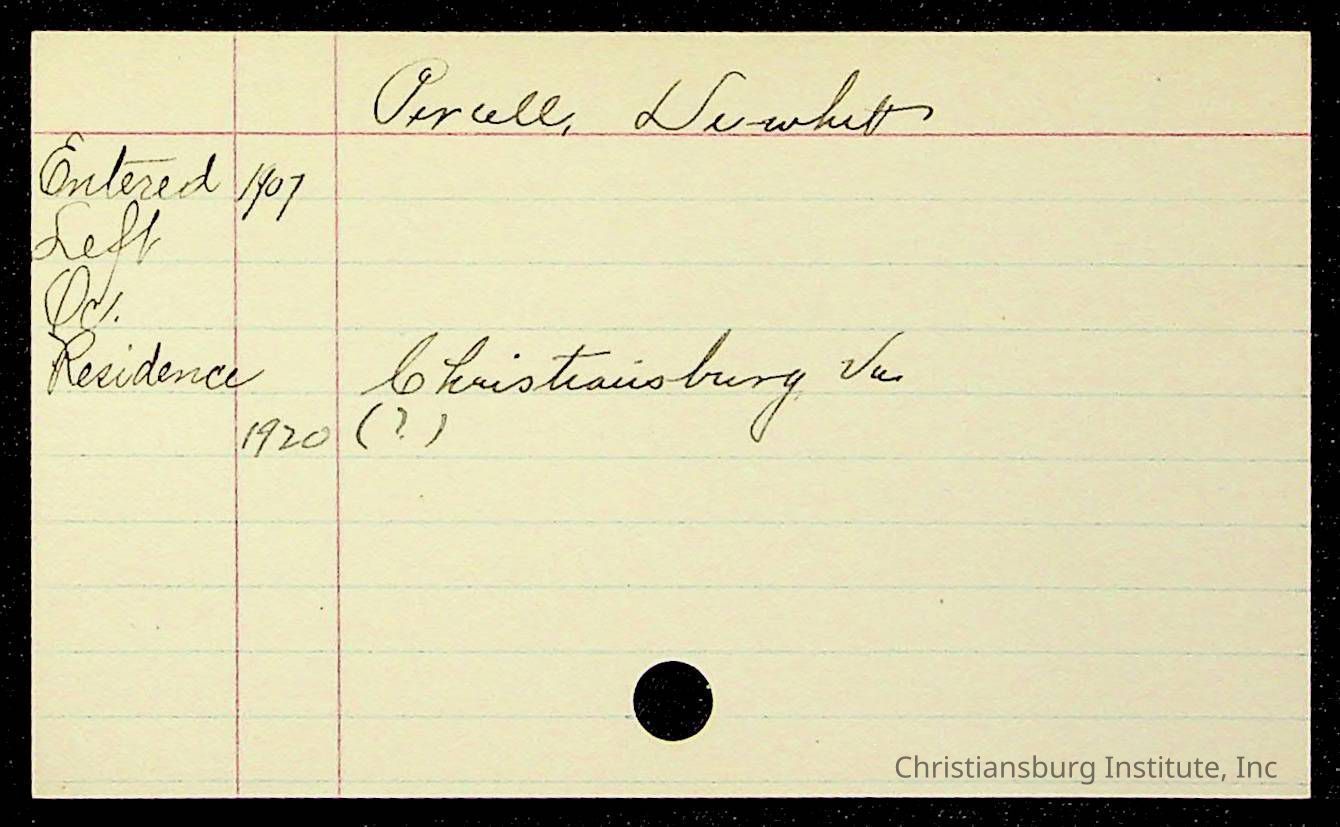 Percell, De-whitt
Entered 1907
Left
Oc.
Residence Christiansburg Va.
1920 (?)
Christiansburg Institute, Inc